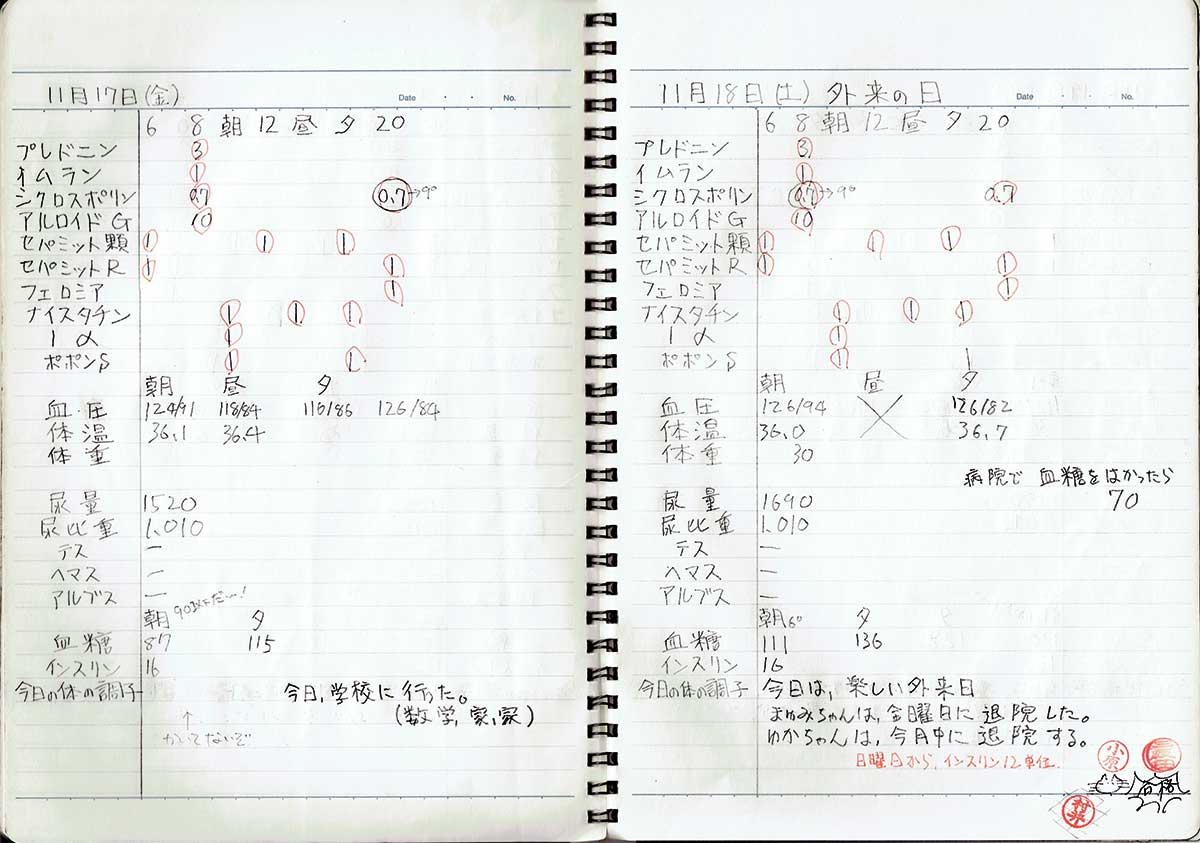 11月17日(金)
Date ・ ・ No.
6 8 朝 12 昼 夕 20
プレドニン 3
イムラン 1
シクロスポリン 0.7 0.7→9°
アルロイドG 10
セパミット顆 1 1 1
セパミットR 1 1
フェロミア 1
ナイスタチン 1 1 1
1α 1
ポポンS 1 1
朝 昼 夕
血圧 124/91 118/84 116/86 126/84
体温 36.1 36.4
体重
尿量 1520
尿比重 1.010
テス ー
ヘマス ー
アルブス ー
朝 90以下だー! 夕
血糖 87 115
インスリン 16
今日の体の調子 今日,学校に行った。
(数学,家,家)
↑
かいてないぞ
11月18日(土) 外来の日
Date ・ ・ No.
6 8 朝 12 昼 夕 20
プレドニン 3
イムラン 1
シクロスポリン 0.7→9° 0.7
アルロイドG 10
セパミット顆 1 1 1
セパミットR 1 1
フェロミア 1
ナイスタチン 1 1 1
1α 1
ポポンS 1 1
朝 昼 夕
血圧 126/94 126/82
体温 36.0 36.7
体重 30
病院で 血糖をはかったら
70
尿量 1690
尿比重 1.010
テス ー
ヘマス ー
アルブス ー
朝6° 夕
血糖 111 136
インスリン 16
今日の体の調子 今日は,楽しい外来日
まゆみちゃんは,金曜日に退院した。
ゆかちゃんは,今月中に退院する。
日曜日から,インスリン12単位.
小原
村井